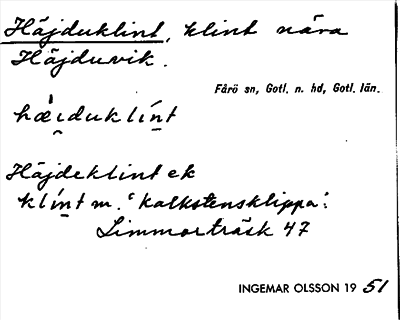 Häjduklint, klint nära
Häjduvik.
Fårö sn, Gotl. n. hd, Gotl. län.
hæ̀i̯duklín̠t
Häjdeklint ek
klín̠t m. "kalkstensklippa":
Limmorträsk 47
INGEMAR OLSSON 19 51